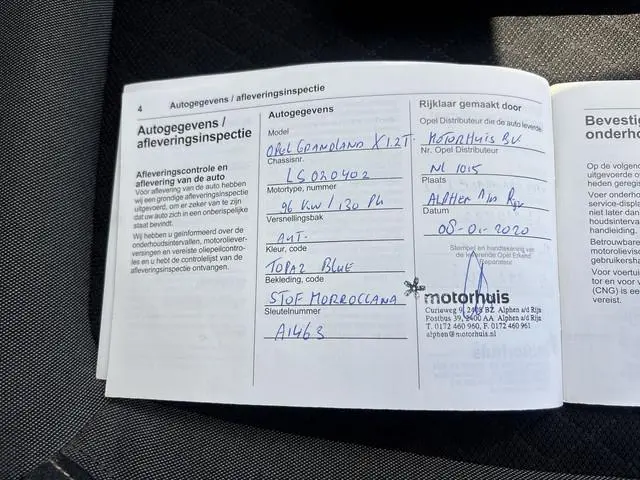 4 Autogegevens / afleveringsinspectie
Autogegevens /
afleveringsinspectie
Afleveringscontrole en
aflevering van de auto
Voor aflevering van de auto hebben
wij een grondige afleveringsinspectie
uitgevoerd, om er zeker van te zijn
dat uw auto zich in een onberispelijke
staat bevindt.
Wij hebben u geïnformeerd over de
onderhoudsintervallen, motoroliever-
versingen en vereiste oliepeilcontro-
les en u hebt de controlelijst van de
afleveringsinspectie ontvangen.
Autogegevens
Model
OPEL GRANDLAND X 1.2T.
Chassisnr.
LS020402
Motortype, nummer
96 KW / 130 PK
Versnellingsbak
AUT.
Kleur, code
TOPAZ BLUE
Bekleding, code
STOF MORROCCANA
Sleutelnummer
A1463
Rijklaar gemaakt door
Opel Distributeur die de auto leverde
MOTORHUIS BV
Nr. Opel Distributeur
NL 1015
Plaats
ALPHEN A/DN RIJN
Datum
08-01-2020
Stempel en handtekening van
de leverende Opel Erkend
Reparateur
motorhuis
Curieweg 9, 2408 BZ Alphen a/d Rijn
Postbus 39, 2400 AA Alphen a/d Rijn
T. 0172 460 960, F. 0172 460 961
alphen@motorhuis.nl
Bevestig
onderho
Op de volgend
uitgevoerde o
heden geregis
Voer onderho
service-displa
niet later dan
houdsinterva
handleiding.
Betrouwbare
motorolievis
gebruikersha
Voor voertui
tor en voor v
(CNG) is ee
vereist.